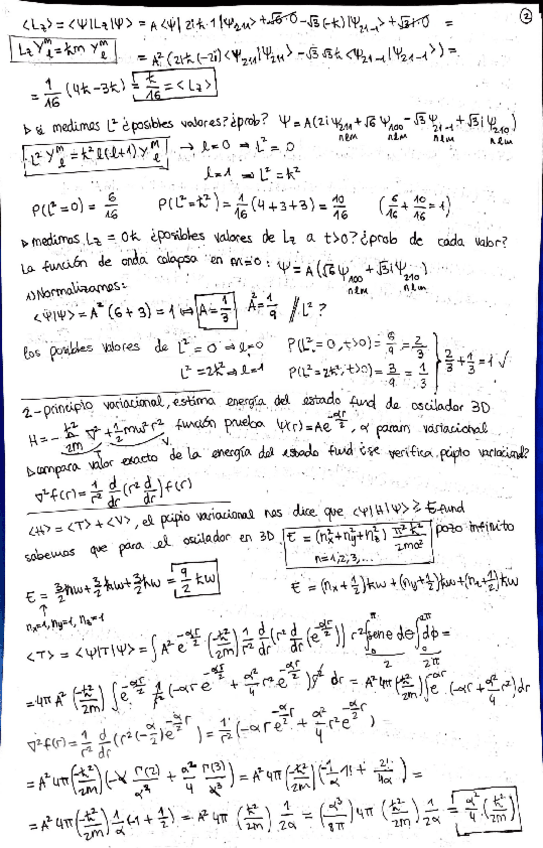 ②
<Lz> = <Ψ|Lz|Ψ> = A<Ψ|2iħ·1|Ψ211> + √6·0 - √3(-ħ)|Ψ21-1> + √3i·0 =
Lz Yℓ^m = ħm Yℓ^m = A²(2iħ(-2i)<Ψ211|Ψ211> - √3√3ħ<Ψ21-1|Ψ21-1>) =
= 1/16 (4ħ-3ħ) = ħ/16 = <Lz>
▷ si medimos L² ¿posibles valores? ¿prob? Ψ = A(2iΨ211 + √6Ψ100 - √3Ψ21-1 + √3iΨ210)
nlm nlm nlm nlm
L² Yℓ^m = ħ²ℓ(ℓ+1)Yℓ^m → ℓ=0 ⇒ L² = 0
ℓ=1 ⇒ L² = ħ²
P(L²=0) = 6/16 P(L²=ħ²) = 1/16 (4+3+3) = 10/16 (6/16 + 10/16 = 1)
▷ medimos Lz = 0ħ ¿posibles valores de Lz a t>0? ¿prob de cada valor?
La función de onda colapsa en m=0: Ψ = A(√6Ψ100 + √3iΨ210)
nlm nlm
1) Normalizamos:
<Ψ|Ψ> = A²(6+3) = 1 ⇔ A = 1/3 A² = 1/9 // L²?
los posibles valores de L² = 0 ⇒ ℓ=0 P(L²=0, t>0) = 6/9 = 2/3
L² = 2ħ² ⇒ ℓ=1 P(L²=2ħ², t>0) = 3/9 = 1/3 } 2/3 + 1/3 = 1 ✓
2-principio variacional, estima energía del estado fund de oscilador 3D
H = -ħ²/2m ∇² + 1/2 mω²r² función prueba Ψ(r) = Ae^(-αr/2), α param variacional
▷ compara valor exacto de la energía del estado fund ¿se verifica ppio variacional?
∇²f(r) = 1/r² d/dr (r² d/dr) f(r)
<H> = <T> + <V>, el ppio variacional nos dice que <Ψ|H|Ψ> ≥ Efund
sabemos que para el oscilador en 3D E = (nx²+ny²+nz²) π²ħ²/2ma² pozo infinito
n=1,2,3,...
E = 3/2ħω + 3/2ħω + 3/2ħω = 9/2 ħω E = (nx+1/2)ħω + (ny+1/2)ħω + (nz+1/2)ħω
↑
nx=1, ny=1, nz=1
<T> = <Ψ|T|Ψ> = ∫A² e^(-αr/2) (-ħ²/2m) 1/r² d/dr (r² d/dr (e^(-αr/2))) r² ∫0^π senθ dθ ∫0^2π dφ =
2 2π
= 4πA² (-ħ²/2m) ∫e^(-αr/2) 1/r² (-αr e^(-αr/2) + α²/4 r² e^(-αr/2)) r² dr = A²4π (-ħ²/2m) ∫e^(-αr) (-αr + α²/4 r²) dr
∇²f(r) = 1/r² d/dr (r²(-α/2) e^(-αr/2)) = 1/r² (-αr e^(-αr/2) + α²/4 r² e^(-αr/2))
= A²4π (-ħ²/2m) (-α Γ(2)/α² + α²/4 Γ(3)/α³) = A²4π (-ħ²/2m) (-1/α 1! + 2!/4α) =
= A²4π (-ħ²/2m) 1/α (-1 + 1/2) = A²4π (ħ²/2m) 1/2α = (α³/8π) 4π (ħ²/2m) 1/2α = α²/4 (ħ²/2m)